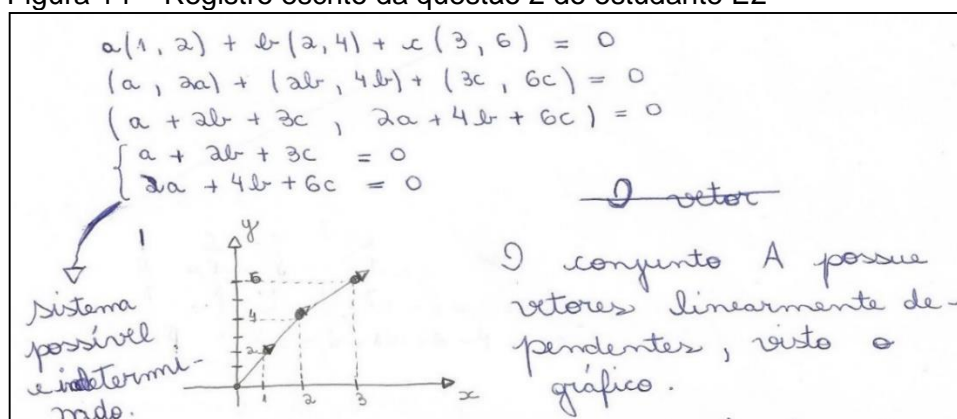 Figura 14 – Registro escrito da questão 2 do estudante E2
a(1, 2) + b(2, 4) + c(3, 6) = 0
(a, 2a) + (2b, 4b) + (3c, 6c) = 0
(a + 2b + 3c, 2a + 4b + 6c) = 0
a + 2b + 3c = 0
2a + 4b + 6c = 0
sistema
possível
e indetermi-
nado.
y
6
4
2
1 2 3
x
O vetor
O conjunto A possue
vetores linearmente de-
pendentes, visto o
gráfico.